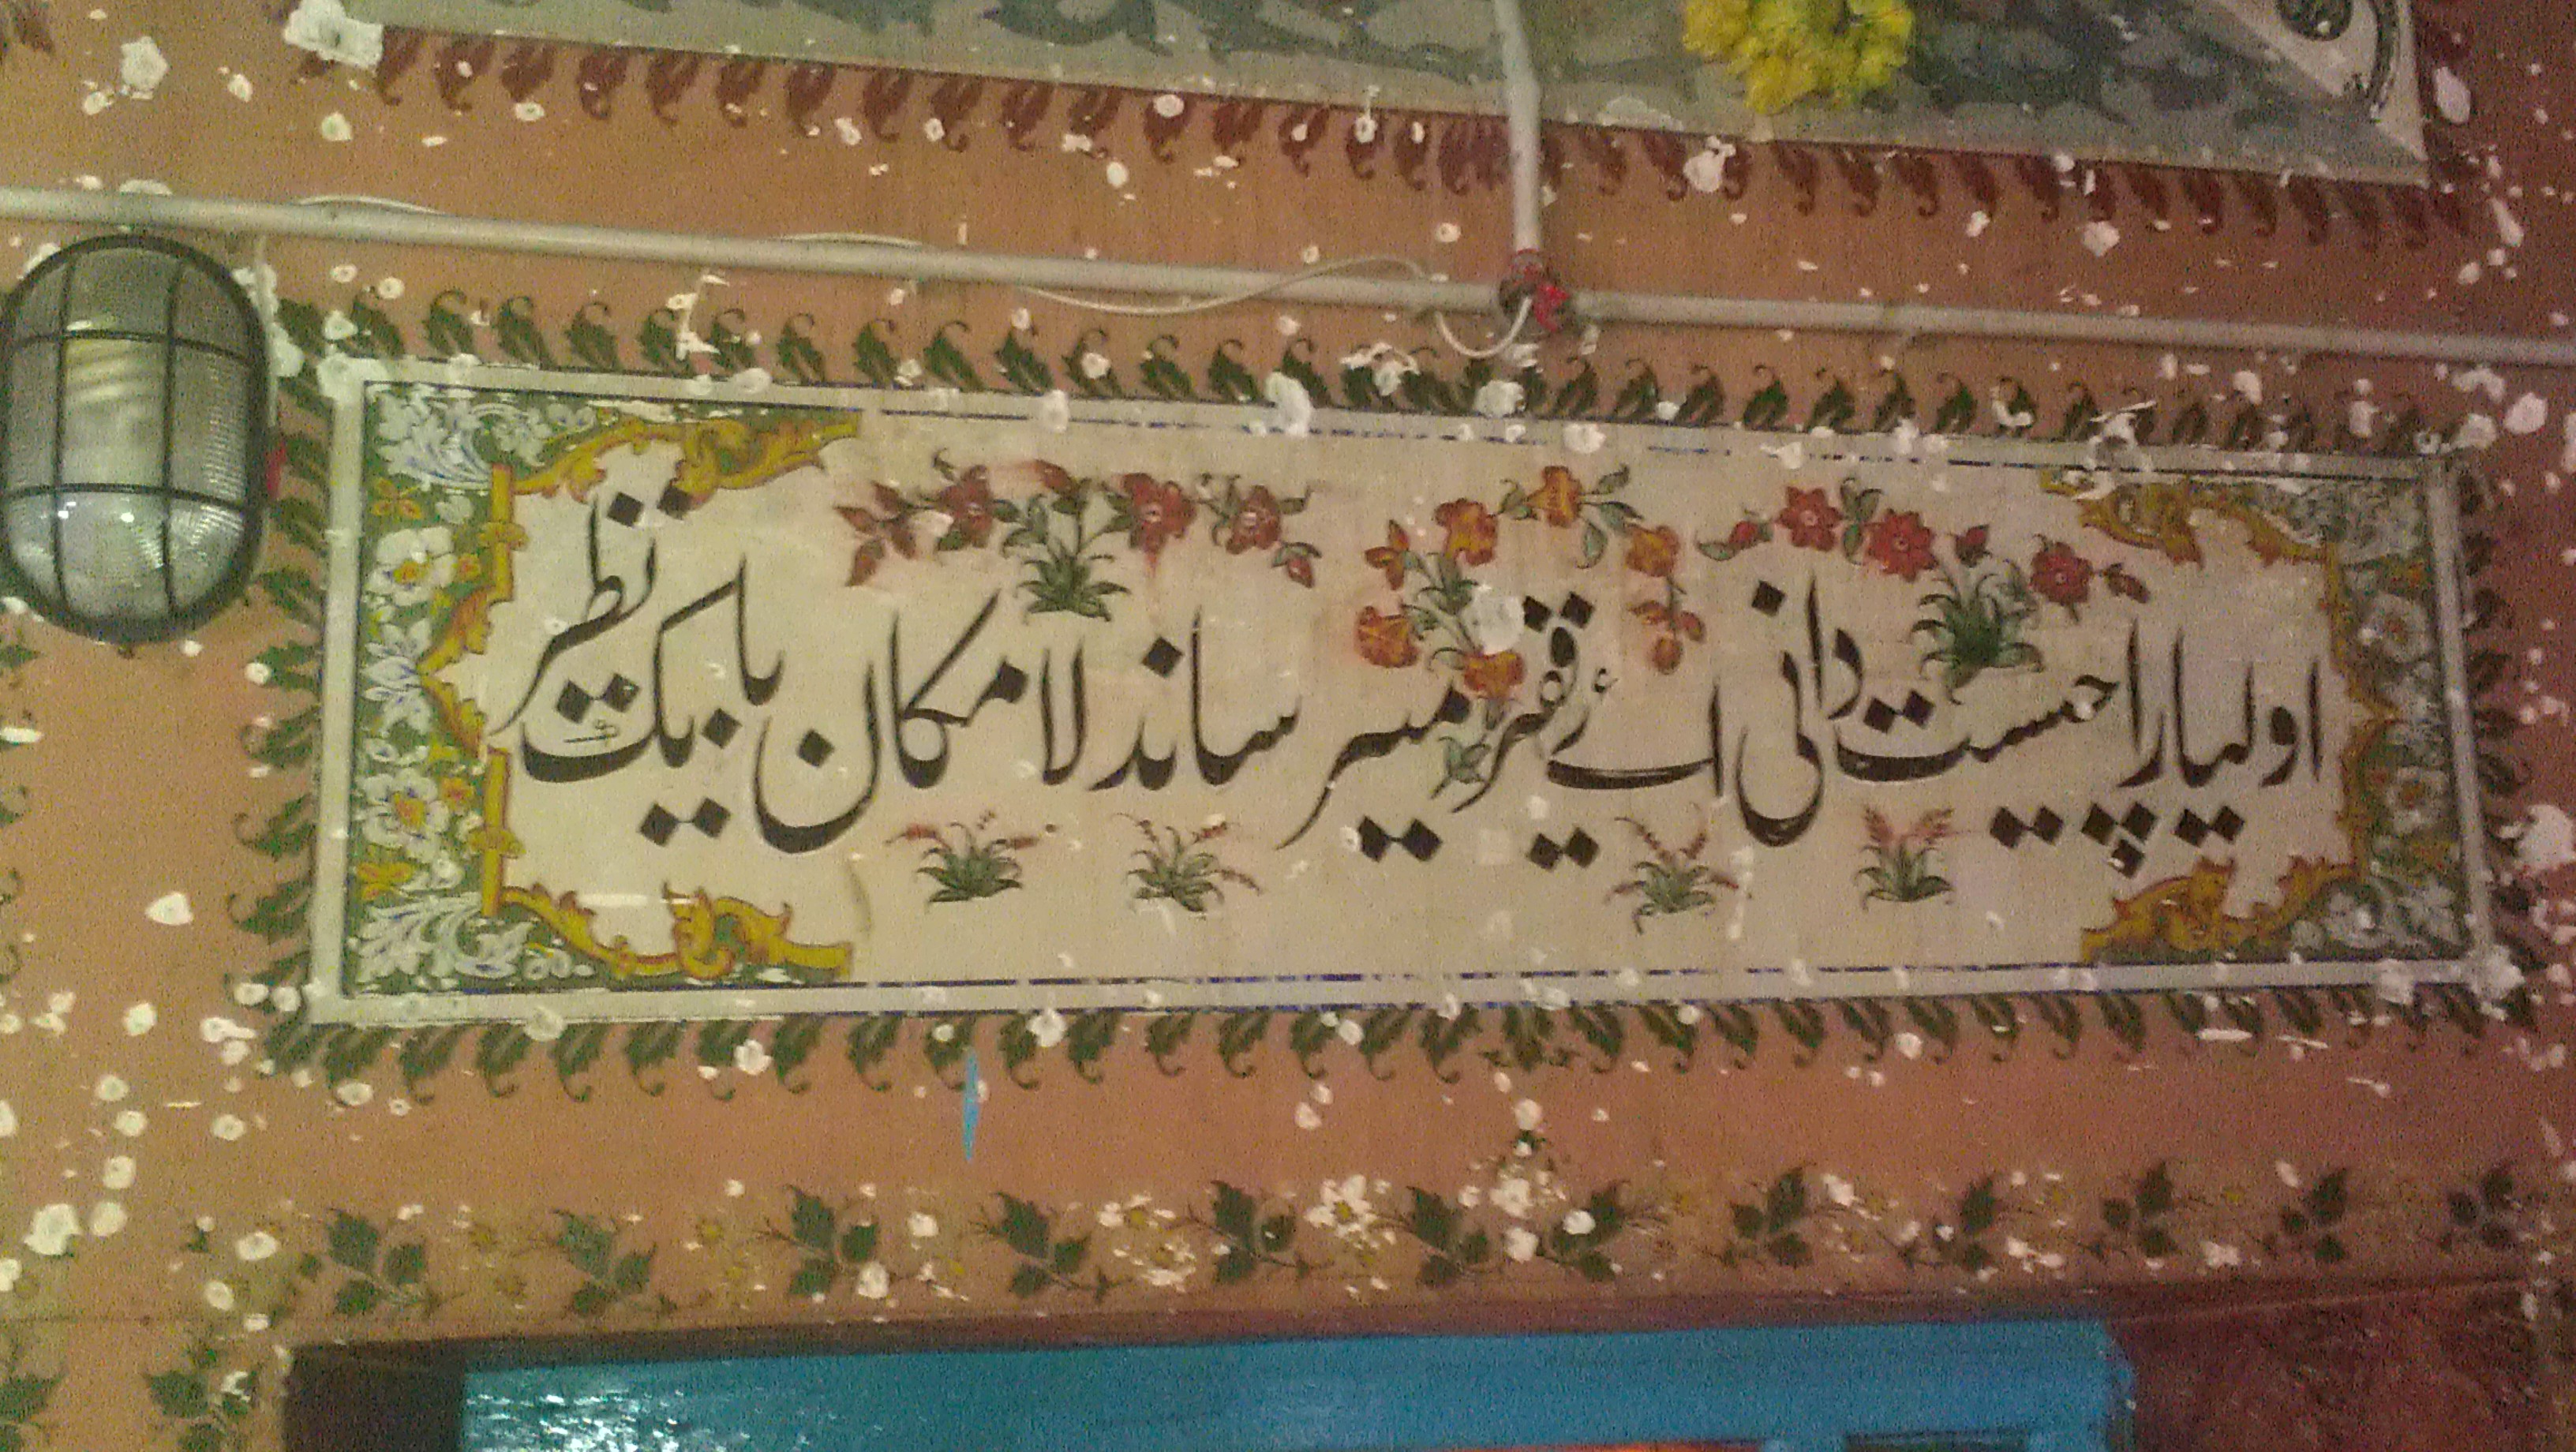 اولیا را چیست دانی اۓ فقیر میر ساند لا مکان با یک نظر